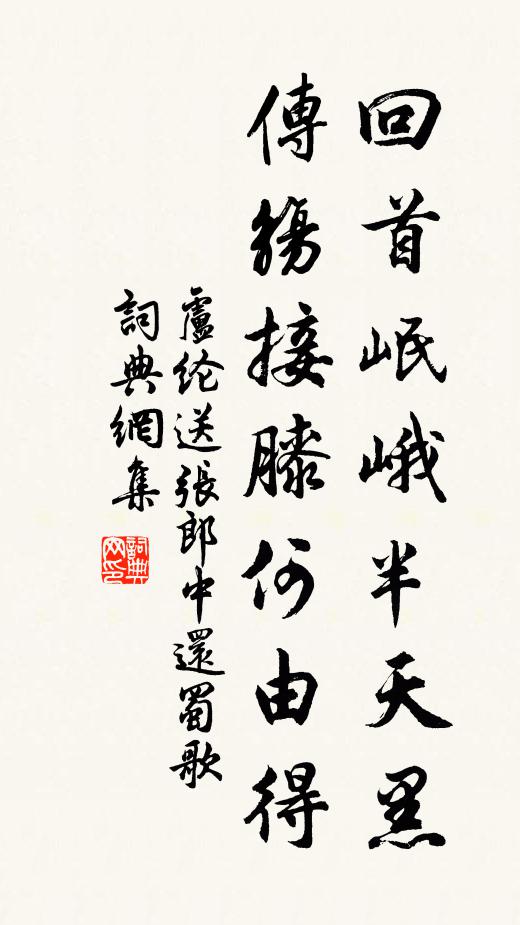 回首岷峨半天黑
傳觴接膝何由得
盧纶送張郎中還蜀歌
詞典網集
詞典网印